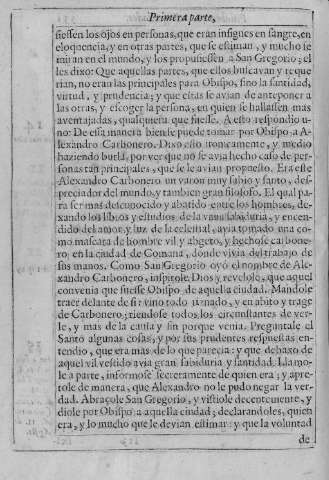 Primera parte,
siessen los ojos en personas, que eran insignes en sangre, en
eloquencia, y en otras partes, que se estiman, y mucho se
miran en el mundo, y los propusiessen a San Gregorio; el
les dixo: Que aquellas partes, que ellos buscavan y reque
rian, no eran las principales para Obispo, sino la santidad,
virtud, y prudencia; y que estas se avian de anteponer a
las otras, y escoger la persona, en quien se hallassen mas
aventajadas, qualquiera que fuesse. A esto respondio u-
no: De essa manera bien se puede tomar por Obispo a A-
lexandro Carbonero. Dixo esto ironicamente, y medio
haziendo burla, por ver que no se avia hecho caso de per-
sonas tan principales, que se le avian propuesto. Era este
Alexandro Carbonero un varon muy sabio y santo, des-
preciador del mundo, y tambien gran filosofo. El qual pa-
ra ser mas desconocido y abatido entre los hombres, de-
xando los libros y estudios de la vana sabiduria, y encen-
dido del amor, y luz de la celestial, avia tomado una co-
mo mascara de hombre vil y abgeto, y hechose carbone-
ro, en la ciudad de Comana, donde vivia del trabajo de
sus manos. Como San Gregorio oyó el nombre de Ale-
xandro Carbonero, inspirole Dios y revelole, que aquel
convenia que fuesse Obispo de aquella ciudad. Mandole
traer delante de si: vino todo tiznado, y en abito y trage
de Carbonero; riendose todos los circunstantes de ver-
le, y mas de la causa y fin porque venia. Preguntale el
Santo algunas cosas, y por sus prudentes respuestas en-
tendio, que era mas de lo que parecia: y que debaxo de
aquel vil vestido avia gran sabiduria y santidad. Llamo-
le a parte, informose secretamente de quien era; y apre-
tole de manera, que Alexandro no le pudo negar la ver-
dad. Abraçole San Gregorio, y vistiole decentemente, y
diole por Obispo a aquella ciudad; declarandoles, quien
era, y lo mucho que le devian estimar: y que la voluntad
de